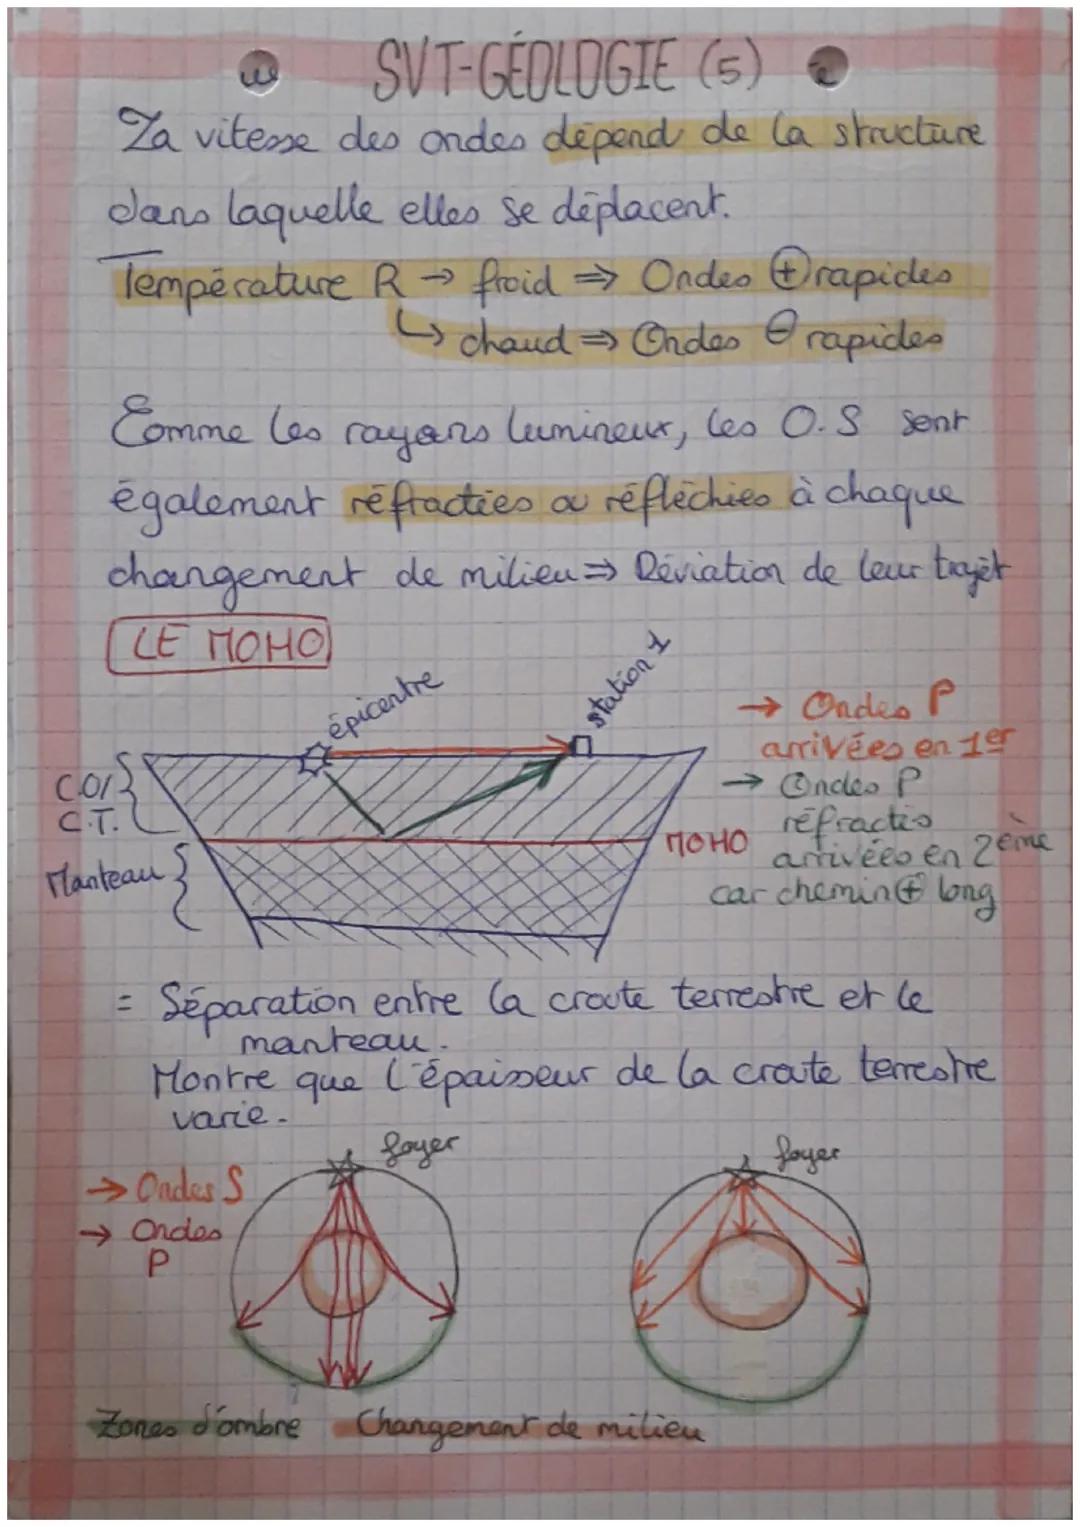 SVT-GÉOLOGIE (5)
La vitesse des ondes dépend de la structure
dans laquelle elles se déplacent.
Température R → froid ⇒ Ondes ⊕ rapides
↳ chaud ⇒ Ondes ⊖ rapides
Comme les rayons lumineux, les O.S sont
également réfractées ou réfléchies à chaque
changement de milieu ⇒ Déviation de leur trajet
LE MOHO
épicentre
station 1
→ Ondes P
arrivées en 1er
→ Ondes P
réfractés
arrivées en 2ème
car chemin ⊕ long
C.O/
C.T.
Manteau
MOHO
= Séparation entre la croute terrestre et le
manteau.
Montre que l'épaisseur de la croute terrestre
varie.
foyer
foyer
→ Ondes S
→ Ondes
P
Zones d'ombre
Changement de milieu